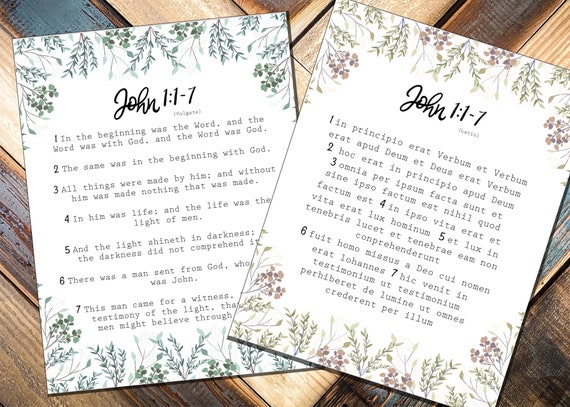 John 1:1-7
(Vulgate)
1 In the beginning was the Word, and the
Word was with God, and the Word was God.
2 The same was in the beginning with God.
3 All things were made by him: and without
him was made nothing that was made.
4 In him was life; and the life was the
light of men.
5 And the light shineth in darkness;
the darkness did not comprehend it
6 There was a man sent from God, who
was John.
7 This man came for a witness,
testimony of the light,
men might believe through
John 1:1-7
(Latin)
1 in principio erat Verbum et Verbum
erat apud Deum et Deus erat Verbum
2 hoc erat in principio apud Deum
3 omnia per ipsum facta sunt et
sine ipso factum est nihil quod
factum est 4 in ipso vita erat et
vita erat lux hominum 5 et lux in
tenebris lucet et tenebrae eam non
conprehenderunt
6 fuit homo missus a Deo cui nomen
erat Iohannes 7 hic venit in
testimonium ut testimonium
perhiberet de lumine ut omnes
crederent per illum